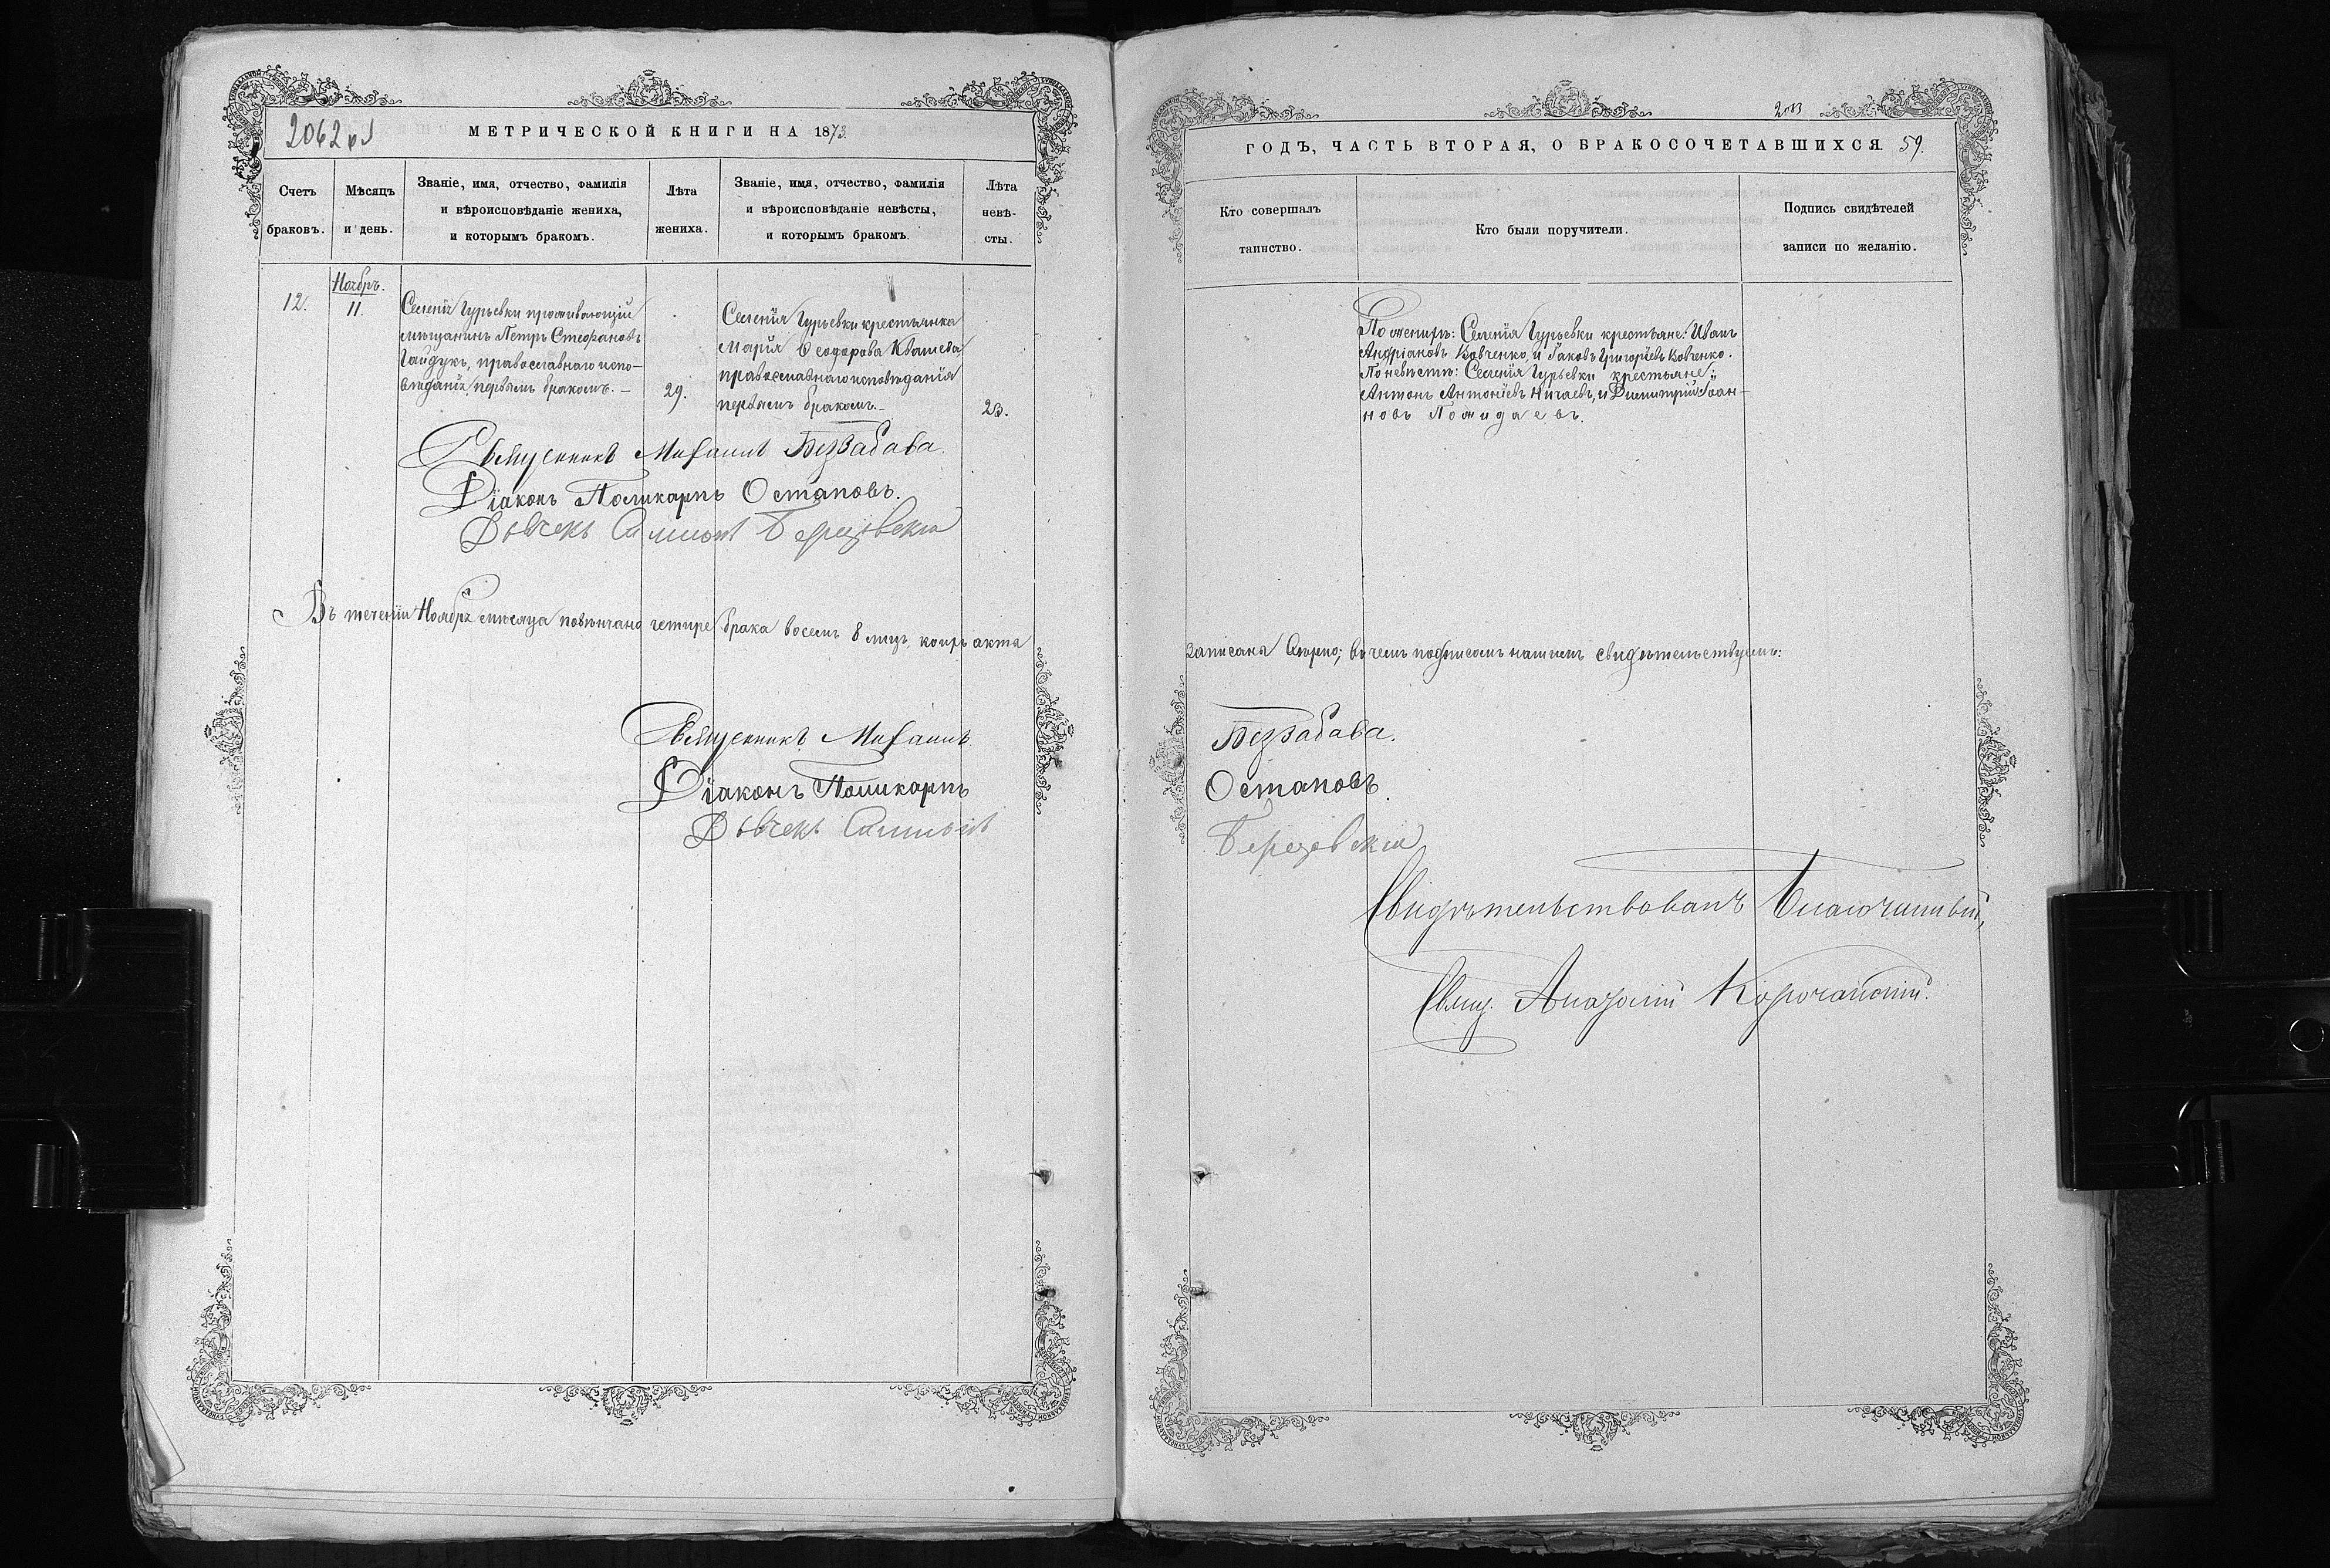 2062 об
МЕТРИЧЕСКОЙ КНИГИ НА 1873
Счетъ
браковъ.
Мѣсяцъ
и день.
Званіе, имя, отчество, фамилія
и вѣроисповѣданіе жениха,
и которымъ бракомъ.
Лѣта
жениха.
Званіе, имя, отчество, фамилія
и вѣроисповѣданіе невѣсты,
и которымъ бракомъ.
Лѣта
невѣ-
сты.
12.
Ноябрь.
11.
Селенія Гурьевки проживающій
мѣщанинъ Петръ Стефановъ
Гайдукъ, православнаго испо-
вѣданія, первымъ бракомъ. –
29.
Селенія Гурьевки крестьянка
Марія Ѳеодорова Квашева
православнаго исповѣданія
первымъ бракомъ. –
23.
Священникъ Михаилъ Беззабава.
Діаконъ Поликарпъ Остаповъ.
Дьячекъ Самуилъ Березовскій
Въ теченіи Ноября мѣсяца повѣнчано четире брака восемь 8 лицъ, коихъ акта
Священникъ Михаилъ
Діаконъ Поликарпъ
Дьячекъ Самуилъ
ГОДЪ, ЧАСТЬ ВТОРАЯ, О БРАКОСОЧЕТАВШИХСЯ. 59.
Кто совершалъ
таинство.
Кто были поручители.
Подпись свидѣтелей
записи по желанію.
По женихѣ: Селенія Гурьевки крестьяне: Иванъ
Андріановъ Вовченко, и Іаковъ Григоріевъ Вовченко.
По невѣстѣ: Селенія Гурьевки крестьяне:
Антонъ Антоніевъ Ничаевъ, и Димитрій Іоан-
новъ Помидаевъ.
записана вѣрно; въ чемъ подписомъ нашимъ свидѣтельствуемъ:
Беззабава.
Остаповъ.
Березовскій
Свидѣтельствовалъ Благочинный,
Свящ. Корочанскій.